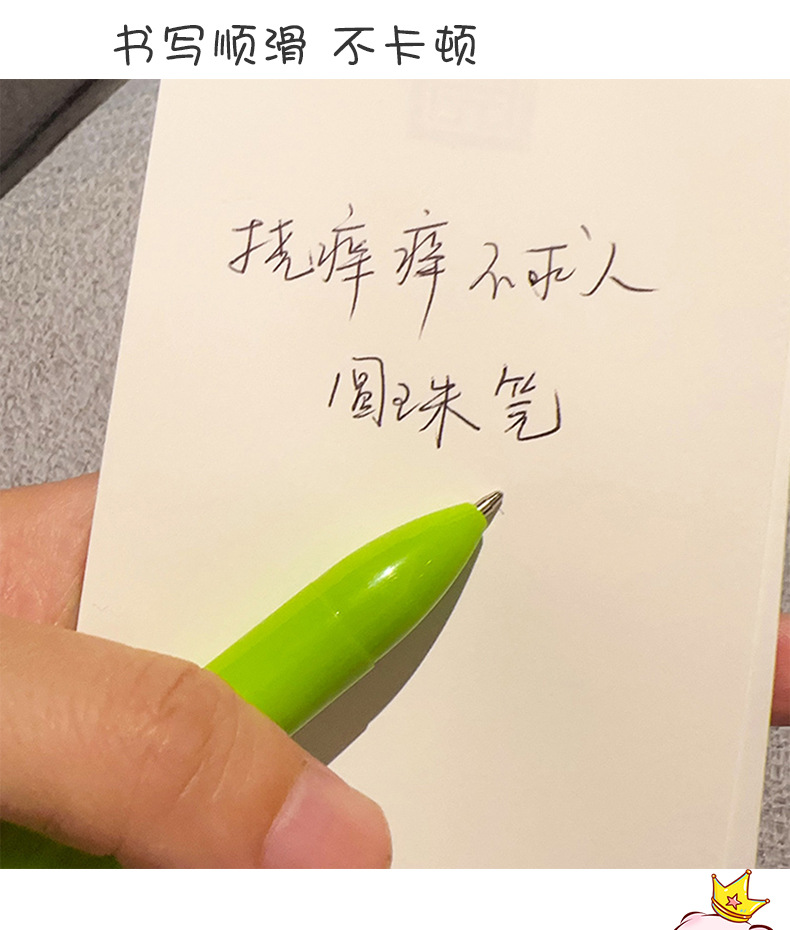 书写顺滑 不卡顿
挠痒痒不求人
圆珠笔